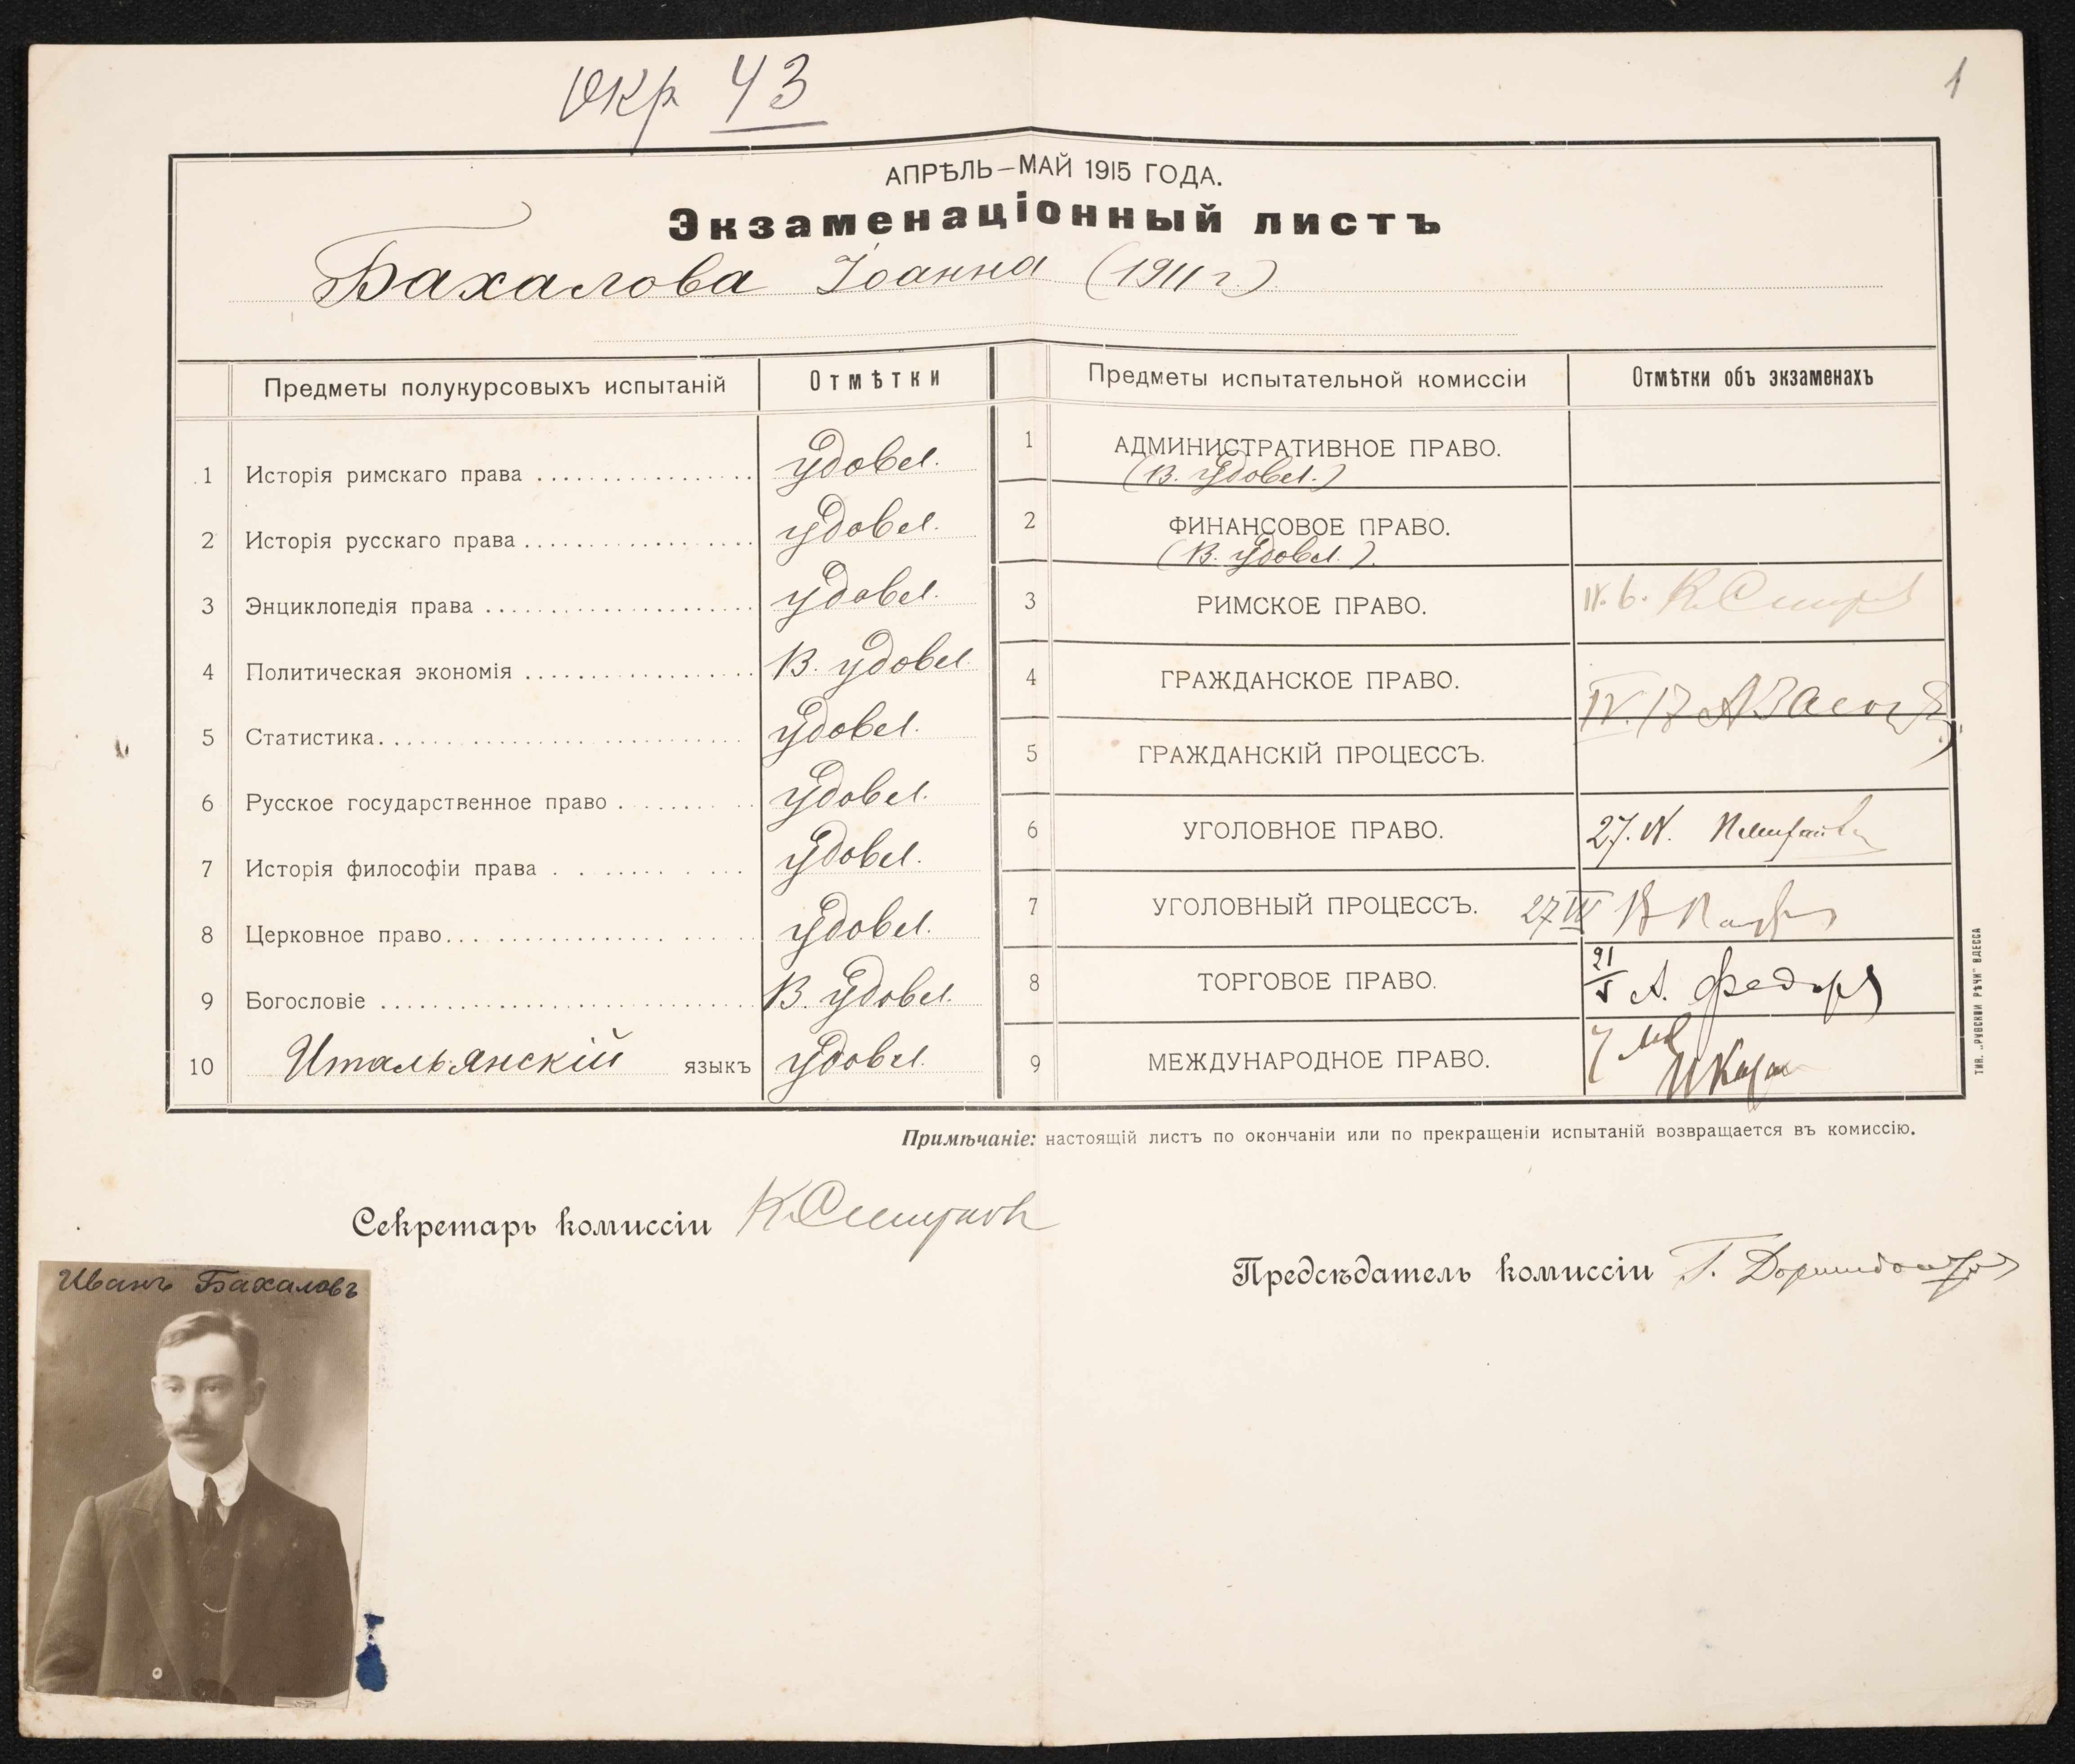 Окр 43
1
АПРѢЛЬ—МАЙ 1915 ГОДА.
Экзаменаціонный листъ
Бахалова Іоанна (1911 г.)
Предметы полукурсовыхъ испытаній
Отмѣтки
1 Исторія римскаго права удовл.
2 Исторія русскаго права удовл.
3 Энциклопедія права удовл.
4 Политическая экономія В. удовл.
5 Статистика удовл.
6 Русское государственное право удовл.
7 Исторія философіи права удовл.
8 Церковное право удовл.
9 Богословіе В. удовл.
10 Итальянскій языкъ удовл.
Предметы испытательной комиссіи
Отмѣтки объ экзаменахъ
1 АДМИНИСТРАТИВНОЕ ПРАВО.
(В. удовл.)
2 ФИНАНСОВОЕ ПРАВО.
(В. удовл.)
3 РИМСКОЕ ПРАВО. IV. 6.
4 ГРАЖДАНСКОЕ ПРАВО. IV. 17
5 ГРАЖДАНСКІЙ ПРОЦЕССЪ.
6 УГОЛОВНОЕ ПРАВО. 27. IV.
7 УГОЛОВНЫЙ ПРОЦЕССЪ. 27
8 ТОРГОВОЕ ПРАВО. 21/V А.
9 МЕЖДУНАРОДНОЕ ПРАВО. 7
ТИП. „РУССКОЙ РѢЧИ" ОДЕССА
Примѣчаніе: настоящій листъ по окончаніи или по прекращеніи испытаній возвращается въ комиссію.
Секретарь комиссіи К. Смирновъ
Предсѣдатель комиссіи Г.
Иванъ Бахаловъ